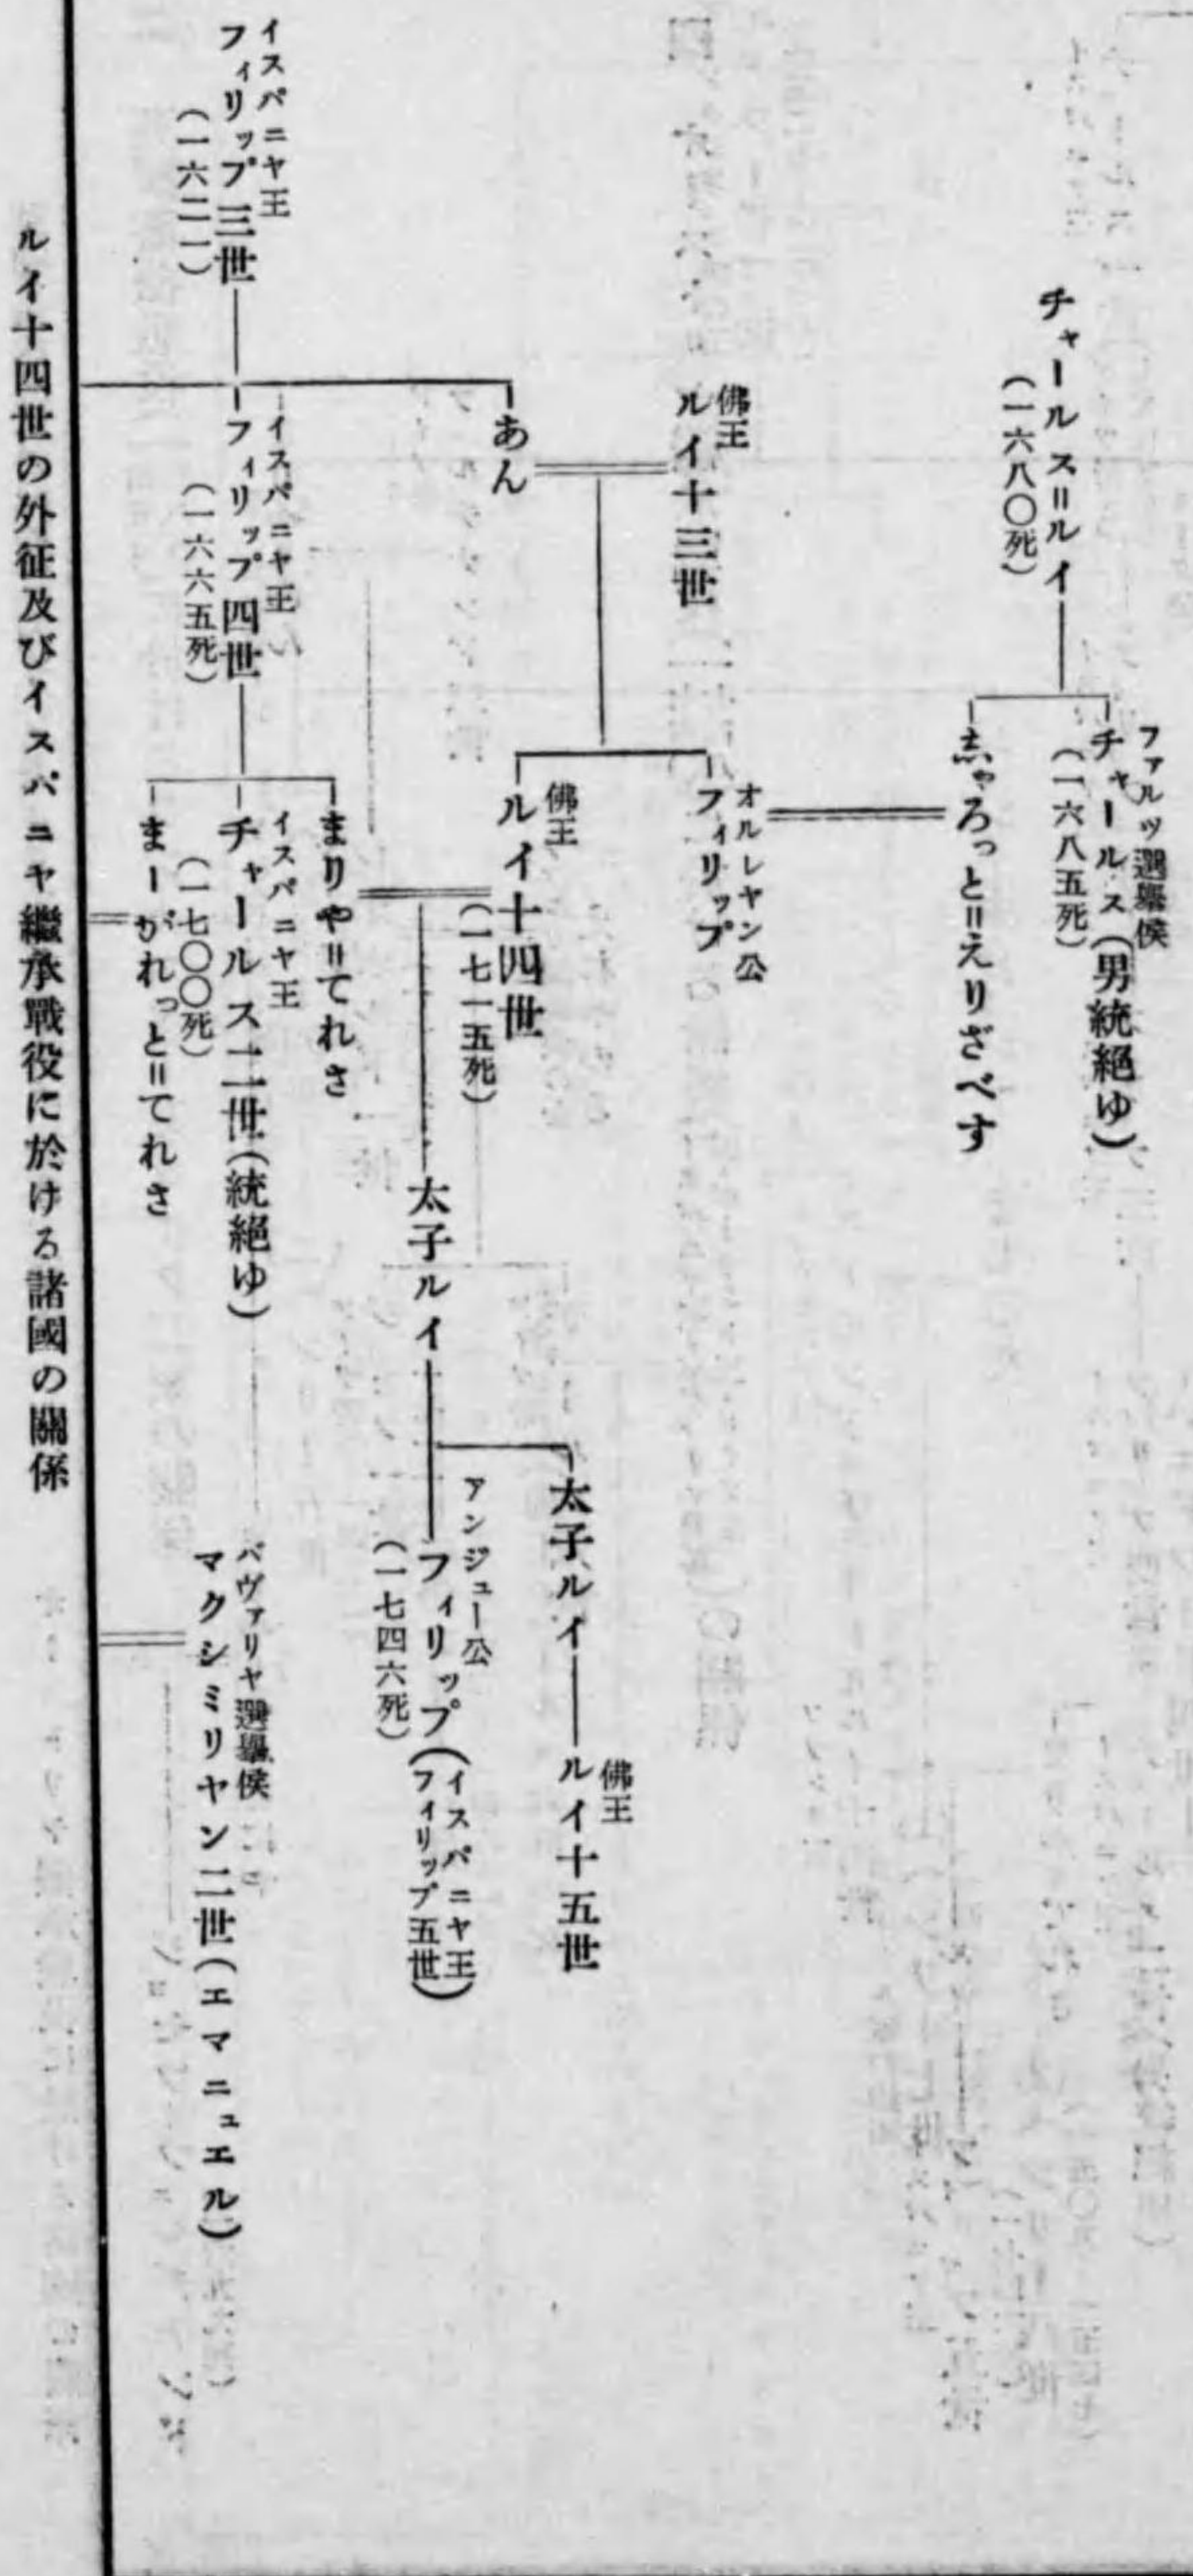 チャールス＝ルイ
（一六八〇死）
ファルツ選擧侯
チャールス（男統絕ゆ）
（一六八五死）
志ゃろっと＝えりざべす
佛王
ルイ十三世
あん
オルレヤン公
フィリップ
佛王
ルイ十四世
（一七一五死）
太子ルイ
太子ルイ
佛王
ルイ十五世
アンジュー公
フィリップ（イスパニヤ王
フィリップ五世）
（一七四六死）
イスパニヤ王
フィリップ三世
（一六二一）
イスパニヤ王
フィリップ四世
（一六六五死）
まりや＝てれさ
イスパニヤ王
チャールス二世（統絕ゆ）
（一七〇〇死）
まーがれっと＝てれさ
バヴァリヤ選擧侯
マクシミリヤン二世（エマニュエル）
ルイ十四世の外征及びイスパニヤ繼承戰役に於ける諸國の關係